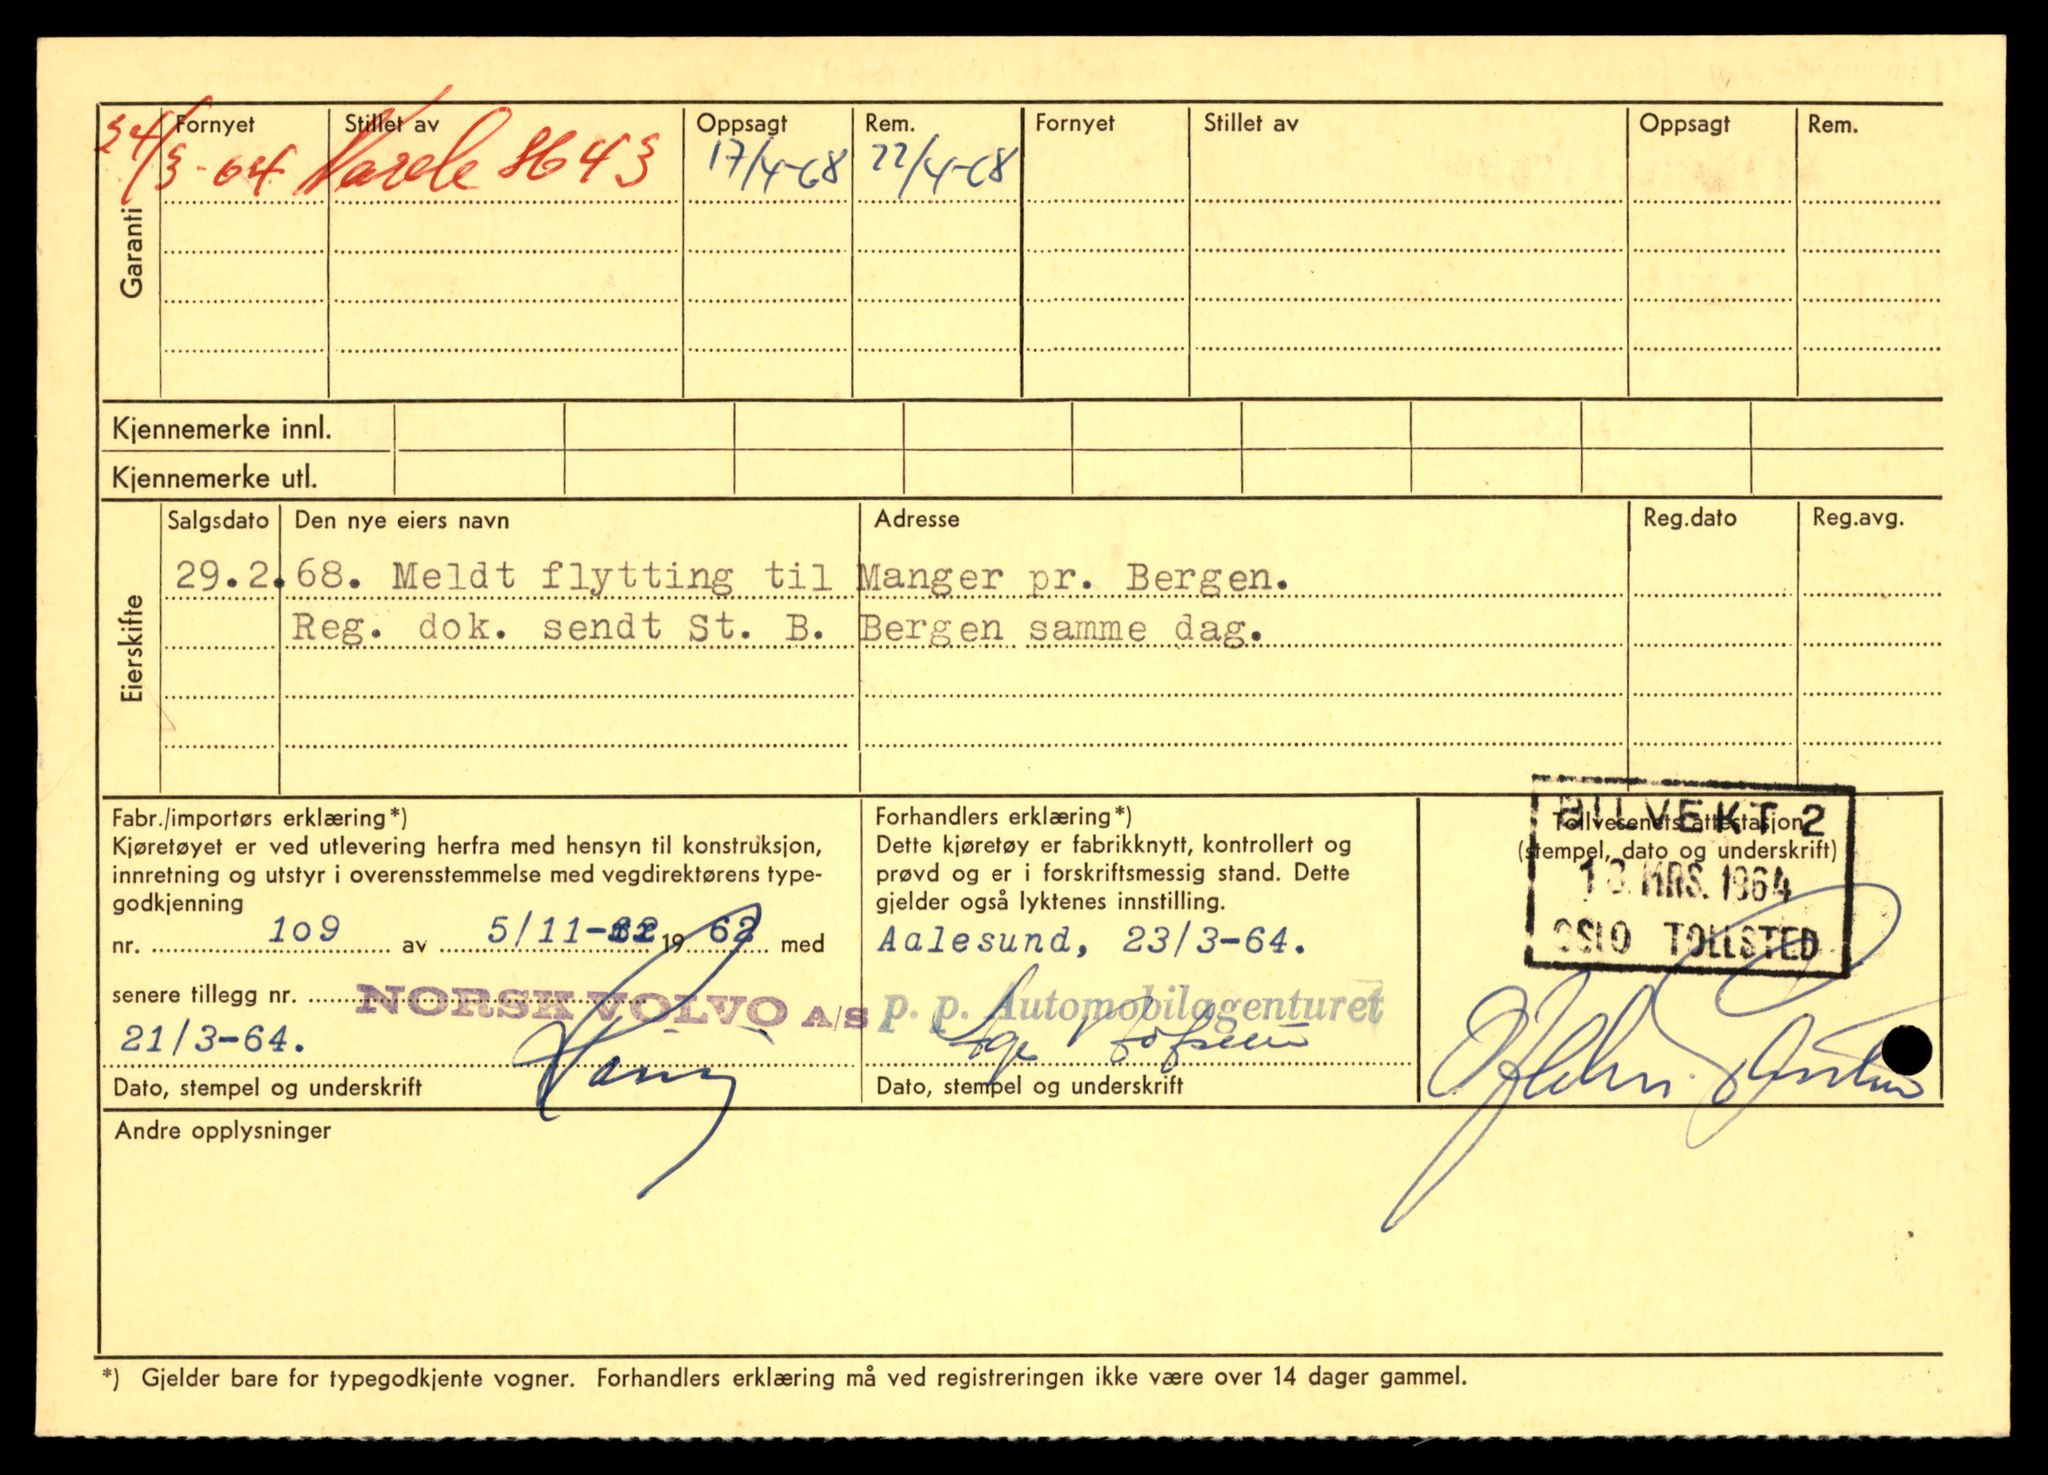 Garanti
Fornyet Stillet av Oppsagt Rem. Fornyet Stillet av Oppsagt Rem.
24/3-64 8643 17/4-68 22/4-68
Kjennemerke innl.
Kjennemerke utl.
Eierskifte
Salgsdato Den nye eiers navn Adresse Reg.dato Reg.avg.
29.2.68. Meldt flytting til Manger pr. Bergen.
Reg. dok. sendt St. B. Bergen samme dag.
Fabr./importørs erklæring*)
Kjøretøyet er ved utlevering herfra med hensyn til konstruksjon,
innretning og utstyr i overensstemmelse med vegdirektørens type-
godkjenning
nr. 109 av 5/11- 19 62 med
senere tillegg nr.
NORSK VOLVO A/S
21/3-64.
Dato, stempel og underskrift
Forhandlers erklæring*)
Dette kjøretøy er fabrikknytt, kontrollert og
prøvd og er i forskriftsmessig stand. Dette
gjelder også lyktenes innstilling.
Aalesund, 23/3-64.
p. p. Automobilagenturet
Dato, stempel og underskrift
Tollvesenets attestasjon
(stempel, dato og underskrift)
BILVEKT 2
MRS. 1964
OSLO TOLLSTED
Andre opplysninger
*) Gjelder bare for typegodkjente vogner. Forhandlers erklæring må ved registreringen ikke være over 14 dager gammel.